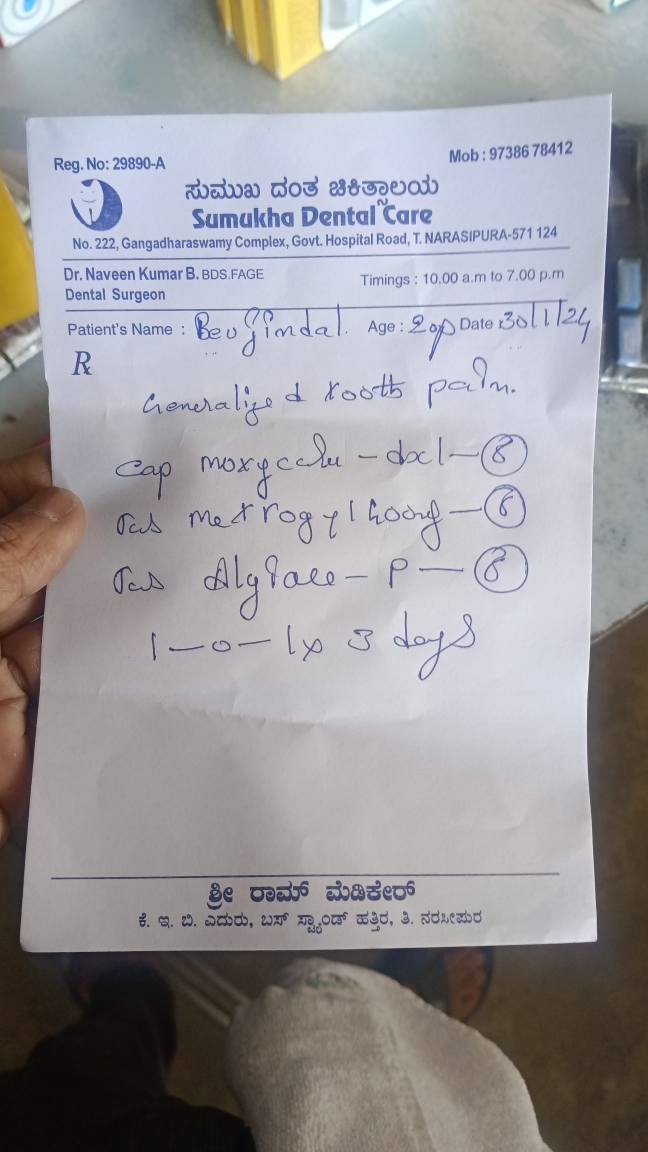 Reg. No: 29890-A
Mob : 97386 78412
ಸುಮುಖ ದಂತ ಚಿಕಿತ್ಸಾಲಯ
Sumukha Dental Care
No. 222, Gangadharaswamy Complex, Govt. Hospital Road, T. NARASIPURA-571 124
Dr. Naveen Kumar B. BDS.FAGE
Timings : 10.00 a.m to 7.00 p.m
Dental Surgeon
Patient's Name : Age : Date 30/1/24
R
Generalized tooth pain.
cap - dxl - 8
Metrogyl 400mg - 8
- P - 8
1-0-1x 3 days
ಶ್ರೀ ರಾಮ್ ಮೆಡಿಕೇರ್
ಕೆ. ಇ. ಬಿ. ಎದುರು, ಬಸ್ ಸ್ಟ್ಯಾಂಡ್ ಹತ್ತಿರ, ತಿ. ನರಸೀಪುರ